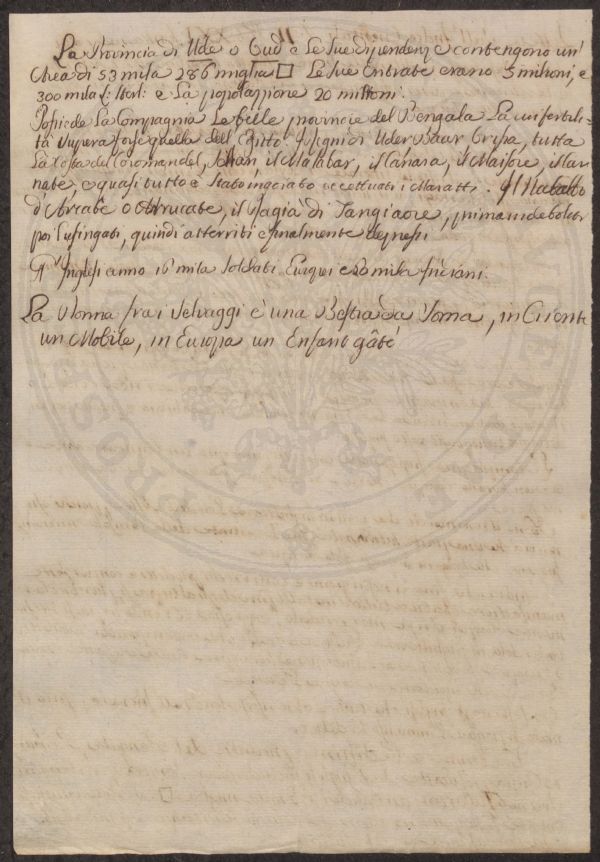 La Provincia di Ude o Oud e le sue dipendenze contengono un'
Area di 53 mila 286 miglia □ Le sue Entrate erano 5 milioni, e
300 mila L: Sterl: e La popolazione 20 milioni.
Possiede La Compagnia Le belle provincie del Bengala La cui fertili-
tà supera forse quella dell'Egitto. I Regni di Orissa, tutta
La Costa del Coromandel, il Malabar, il Canara, il Maissore, il Car
nate, e quasi tutto è stato ingoiato eccettuati i Maratti. Il Nababbo
d'Arcate o Arrucate, il Ragià di Tangiaore, prima indeboliti
poi lusingati, quindi atterriti e finalmente depressi
Gl'Inglesi anno 16 mila soldati Europei e 80 mila
La Donna fra i Selvaggi è una Bestia da Soma, in Oriente
un Mobile, in Europa un Enfant gâté
PROSP